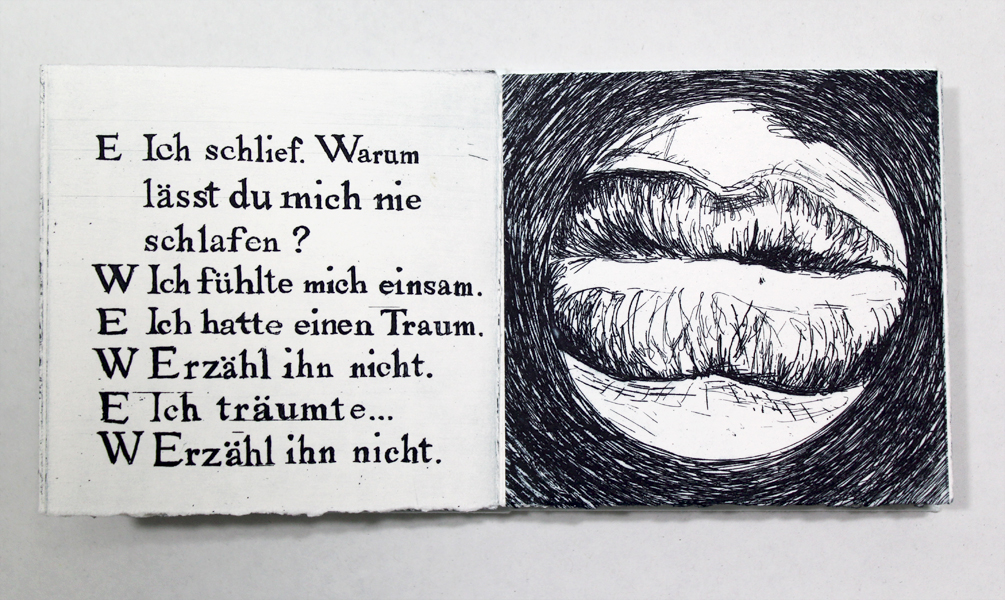 E Ich schlief. Warum
lässt du mich nie
schlafen ?
W Ich fühlte mich einsam.
E Ich hatte einen Traum.
W Erzähl ihn nicht.
E Ich träumte...
W Erzähl ihn nicht.